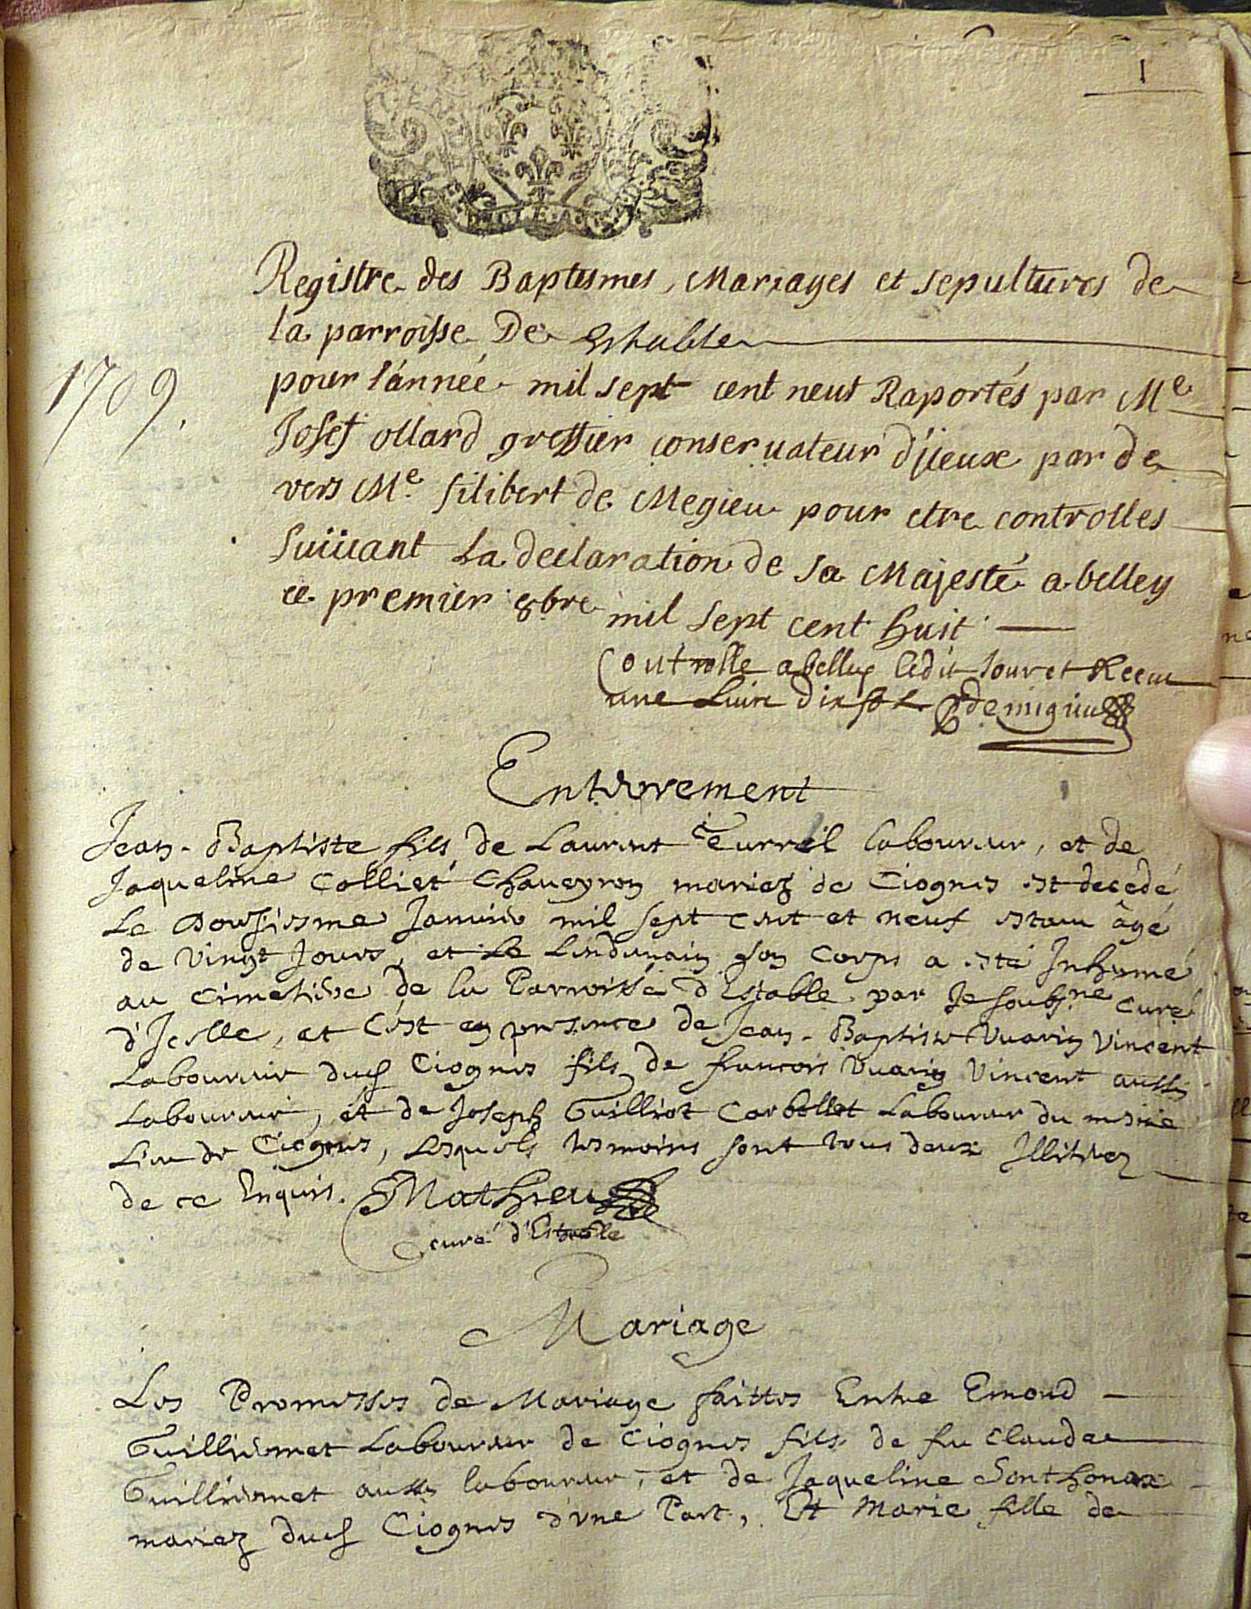 1
Registre des Baptesmes, Mariages et sepultures de
la parroisse De Estable
1709.
pour l'année mil sept cent neuf Raportés par Me
Josef ollard greffier conservateur d'jceux par de
vers Me. filibert de Megieu pour etre controlles
Suiuant La declaration de sa Majesté a belley
ce premier 8bre mil sept cent huit
Controlle a belley ledit Jour et Receu
une Liure dix sols demigieu
Enterrement
Jean-Baptiste fils de Laurent Turril laboureur, et de
Jaqueline Colliet Chaueyron mariez de Ciognes est decedé
Le Douziesme Janvier mil sept cent et neuf estant âgé
de vingt Jours, et Le Lendemain son corps a esté Inhumé
au Cimetiere de la Parroisse d'Estable par Je soubsne curé
d'Jcelle, et C'est en presence de Jean-Baptiste Vuarin Vincent
Laboureur dud Ciognes fils de francois Vuarin Vincent aussy
Laboureur, et de Joseph Guilliot Carbollet Laboureur du mesme
Lieu de Ciognes, Lesquels tesmoins sont tous deux Jlliterez
de ce Enquis. Mathieu
curé d'Estable
Mariage
Les Promesses de Mariage faittes Entre Emond
Guillermet Laboureur de Ciognes fils de feu Claude
Guillermet aussy laboureur, et de Jaqueline Sonthonax
mariez dud Ciognes d'vne Part, Et Marie fille de